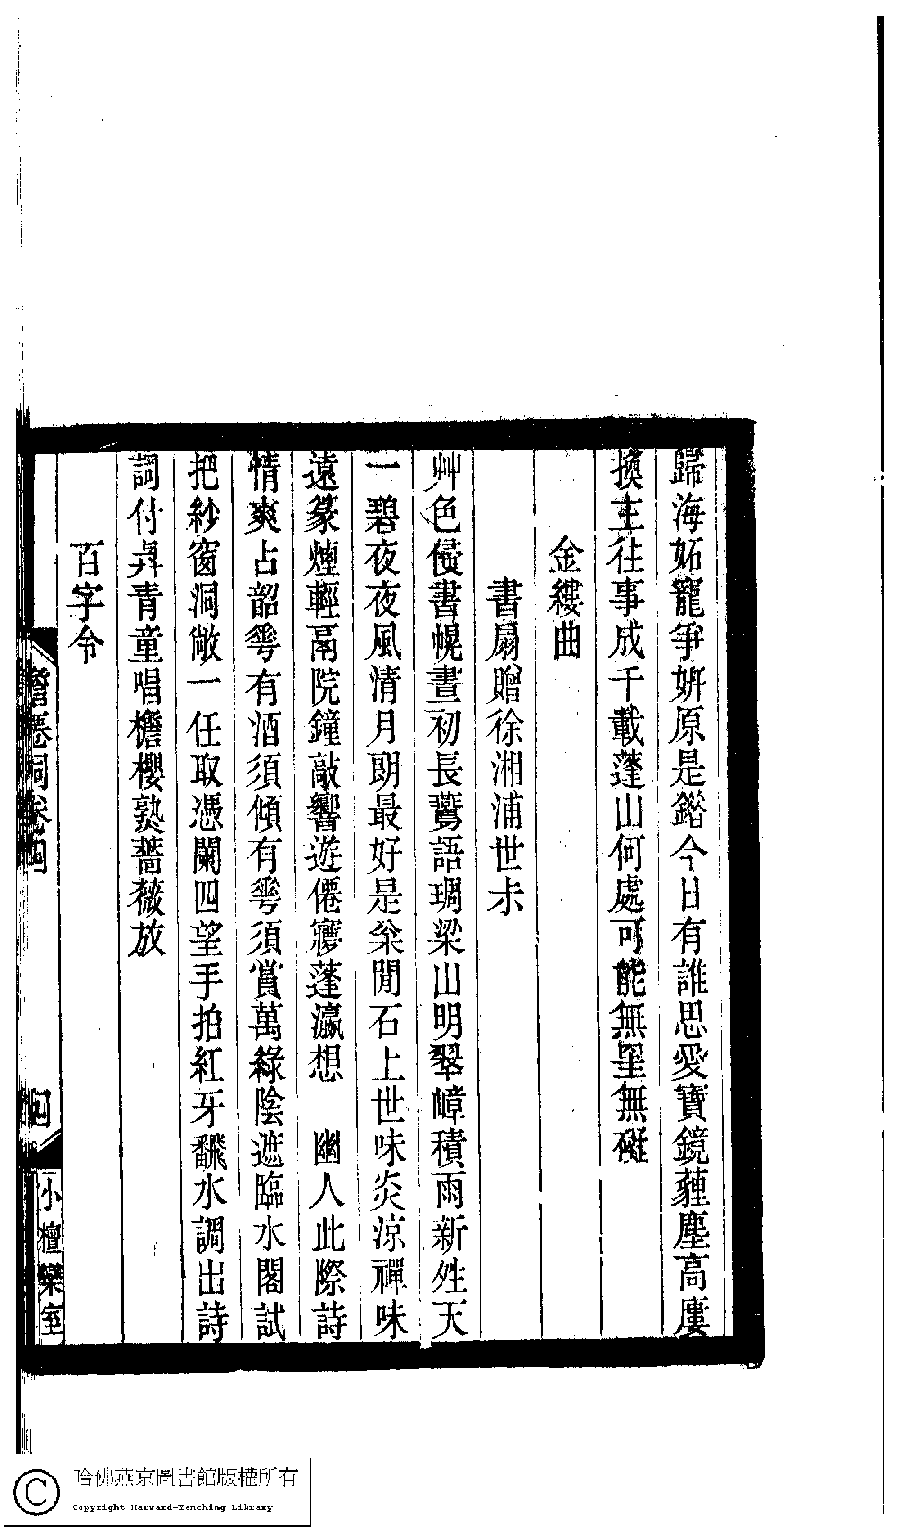 歸海妬寵爭妍原是錯今日有誰思愛寶鏡薶塵高廔
換主往事成千載蓬山何處可能無罣無礙
金縷曲
書扇贈徐湘浦世尗
艸色侵書幌晝初長鷰語琱梁山明翠嶂積雨新姓天
一碧夜夜風清月朗最好是粂閒石上世味炎涼禪味
遠篆煙輕鬲院鐘敲響遊僊寱蓬瀛想　幽人此際詩
情爽占韶雩有酒須傾有雩須賞萬綠陰遮臨水閣試
把紗窗洞敞一任取憑闌四望手拍紅牙飜水調出詩
詞付與青童唱櫓櫻熟薔薇放
百字令
詞卷四
四
小檀欒室
哈佛燕京圖書館版權所有
Copyright Harvard-Yenching Library